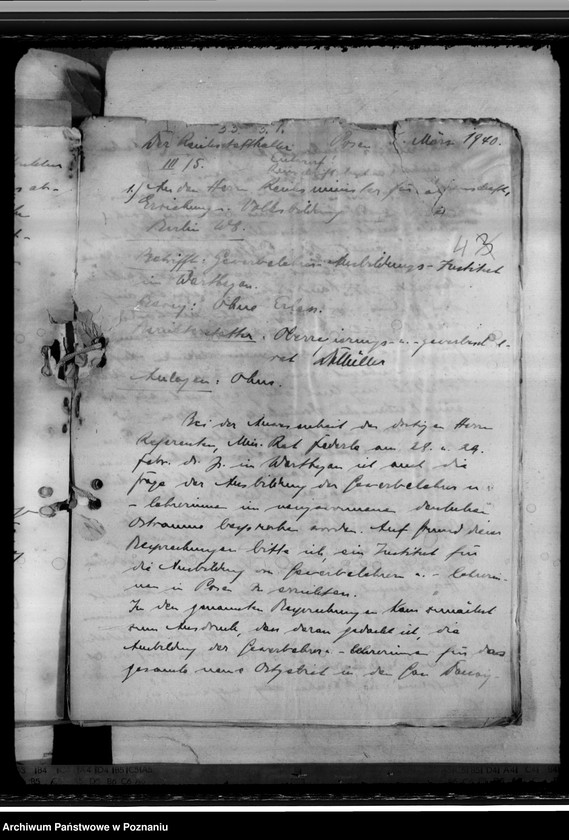 Der Reichsstatthalter Posen März 1940.
III/5.
Entwurf
1./ An den Herrn Reichsminister für Wissenschaft,
Erziehung u. Volksbildung
Berlin W8.
43
Betrifft: Gewerbelehrer-Ausbildungs-Institut
im Warthegau.
Bezug: Ohne Erlass.
Berichterstatter: Oberregierungs- u. -gewerbeschul-
rat Müller
Anlagen: Ohne.
Bei der Anwesenheit des dortigen Herrn
Referenten, Min. Rat Federle am 28. u. 29.
Febr. d. J. im Warthegau ist auch die
Frage der Ausbildung der Gewerbelehrer u.
-lehrerinnen im neugewonnenen deutschen
Ostraume besprochen worden. Auf Grund dieser
Besprechungen bitte ich, ein Institut für
die Ausbildung von Gewerbelehrern u. -lehrerin-
nen in Posen zu errichten.
In den genannten Besprechungen kam zunächst
zum Ausdruck, dass daran gedacht ist, die
Ausbildung der Gewerbelehrer u. -lehrerinnen für das
gesamte neue Ostgebiet in den Gau Danzig-
Archiwum Państwowe w Poznaniu